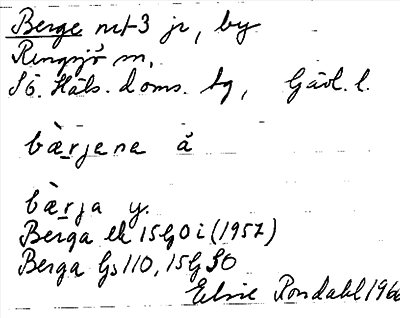 Berge nr1-3 jr, by
Rengsjö sn,
Sö. Häls. doms. sg, Gävl. l.
bæ̀rjena å
bæ̀rja y.
Berga ek 15G0i (1957)
Berga Gs 110, 15G SO
Elsie Rondahl 1966